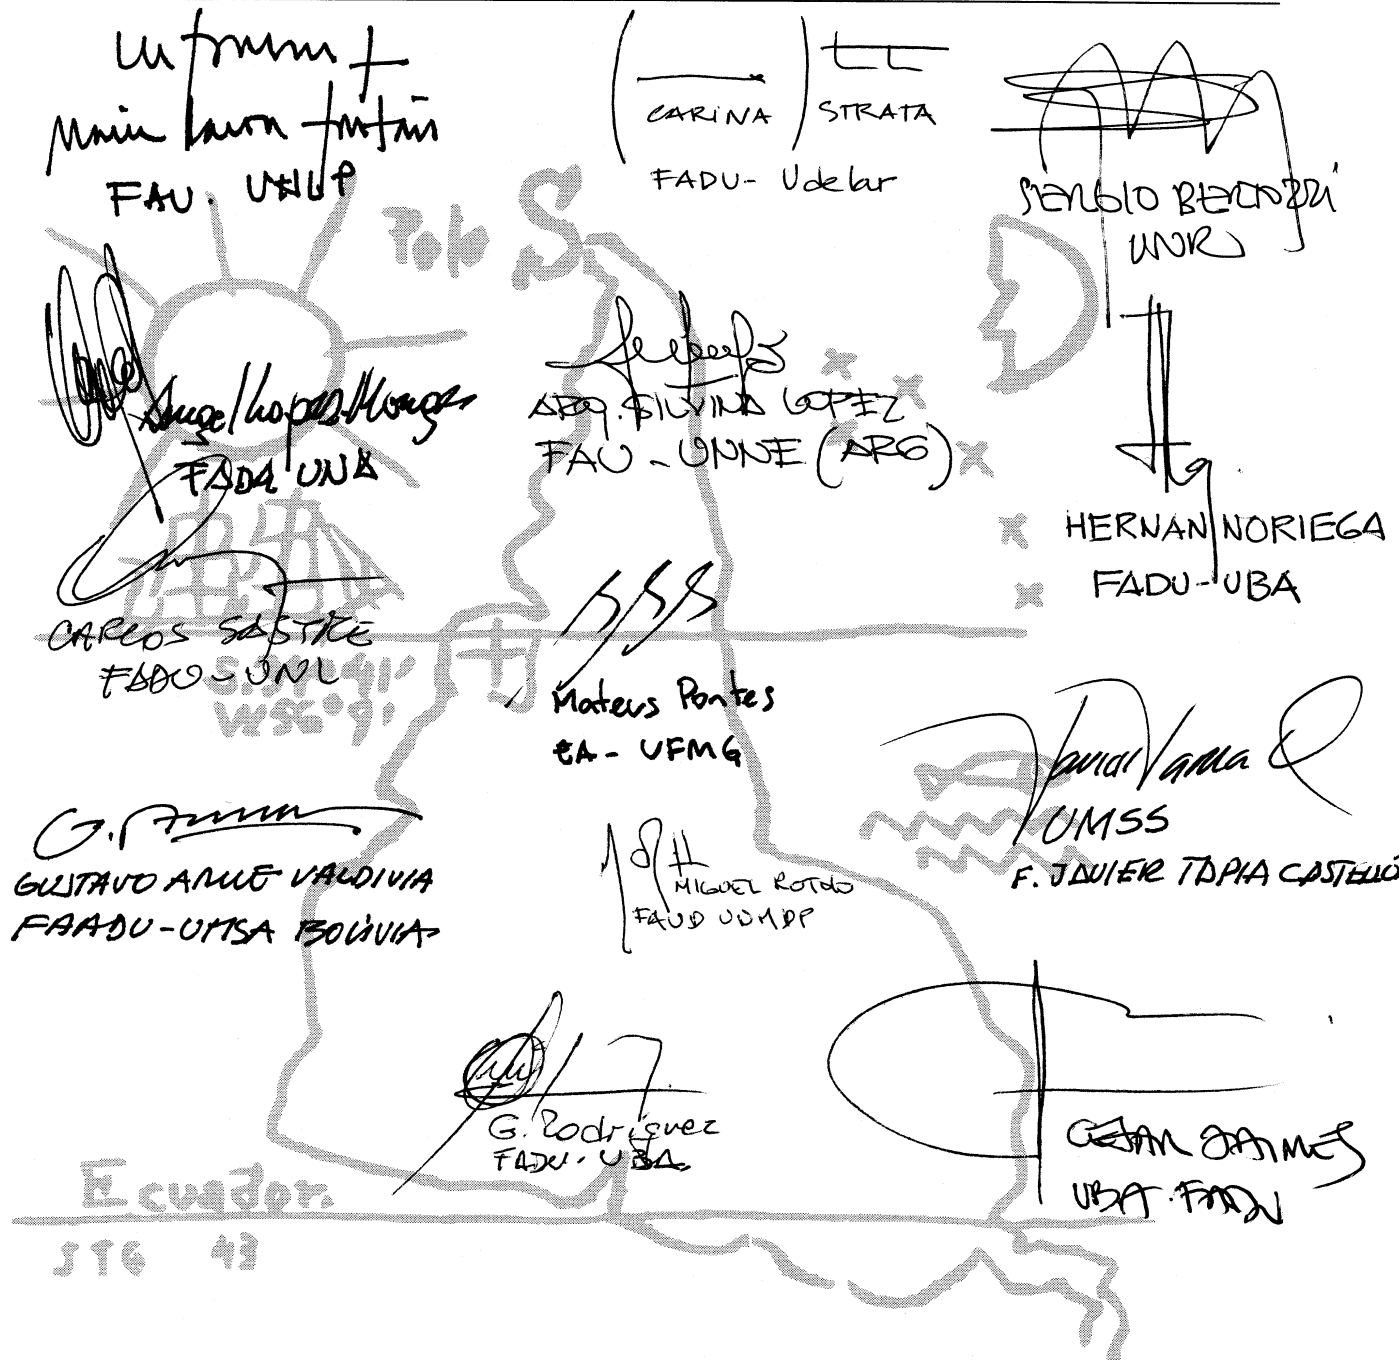 Maria Laura Fontán
FAU. UNLP
CARINA STRATA
FADU- Udelar
SERGIO BERTOZZI
UNR
Polo S.
Angel Lopez Monges
FADA UNA
ARQ. SILVINA LOPEZ
FAU - UNNE (ARG)
HERNAN NORIEGA
FADU-UBA
CARLOS SASTRE
FADU-UNL
Mateus Pontes
EA - UFMG
UMSS
F. JAVIER TAPIA CASTELLÓ
GUSTAVO ARCE VALDIVIA
FAADU-UMSA BOLIVIA
MIGUEL ROTOLO
FAUD UNMDP
G. Rodriguez
FADU. UBA.
CESAR JAIMES
UBA. FADU
Ecuador.
JTG 43